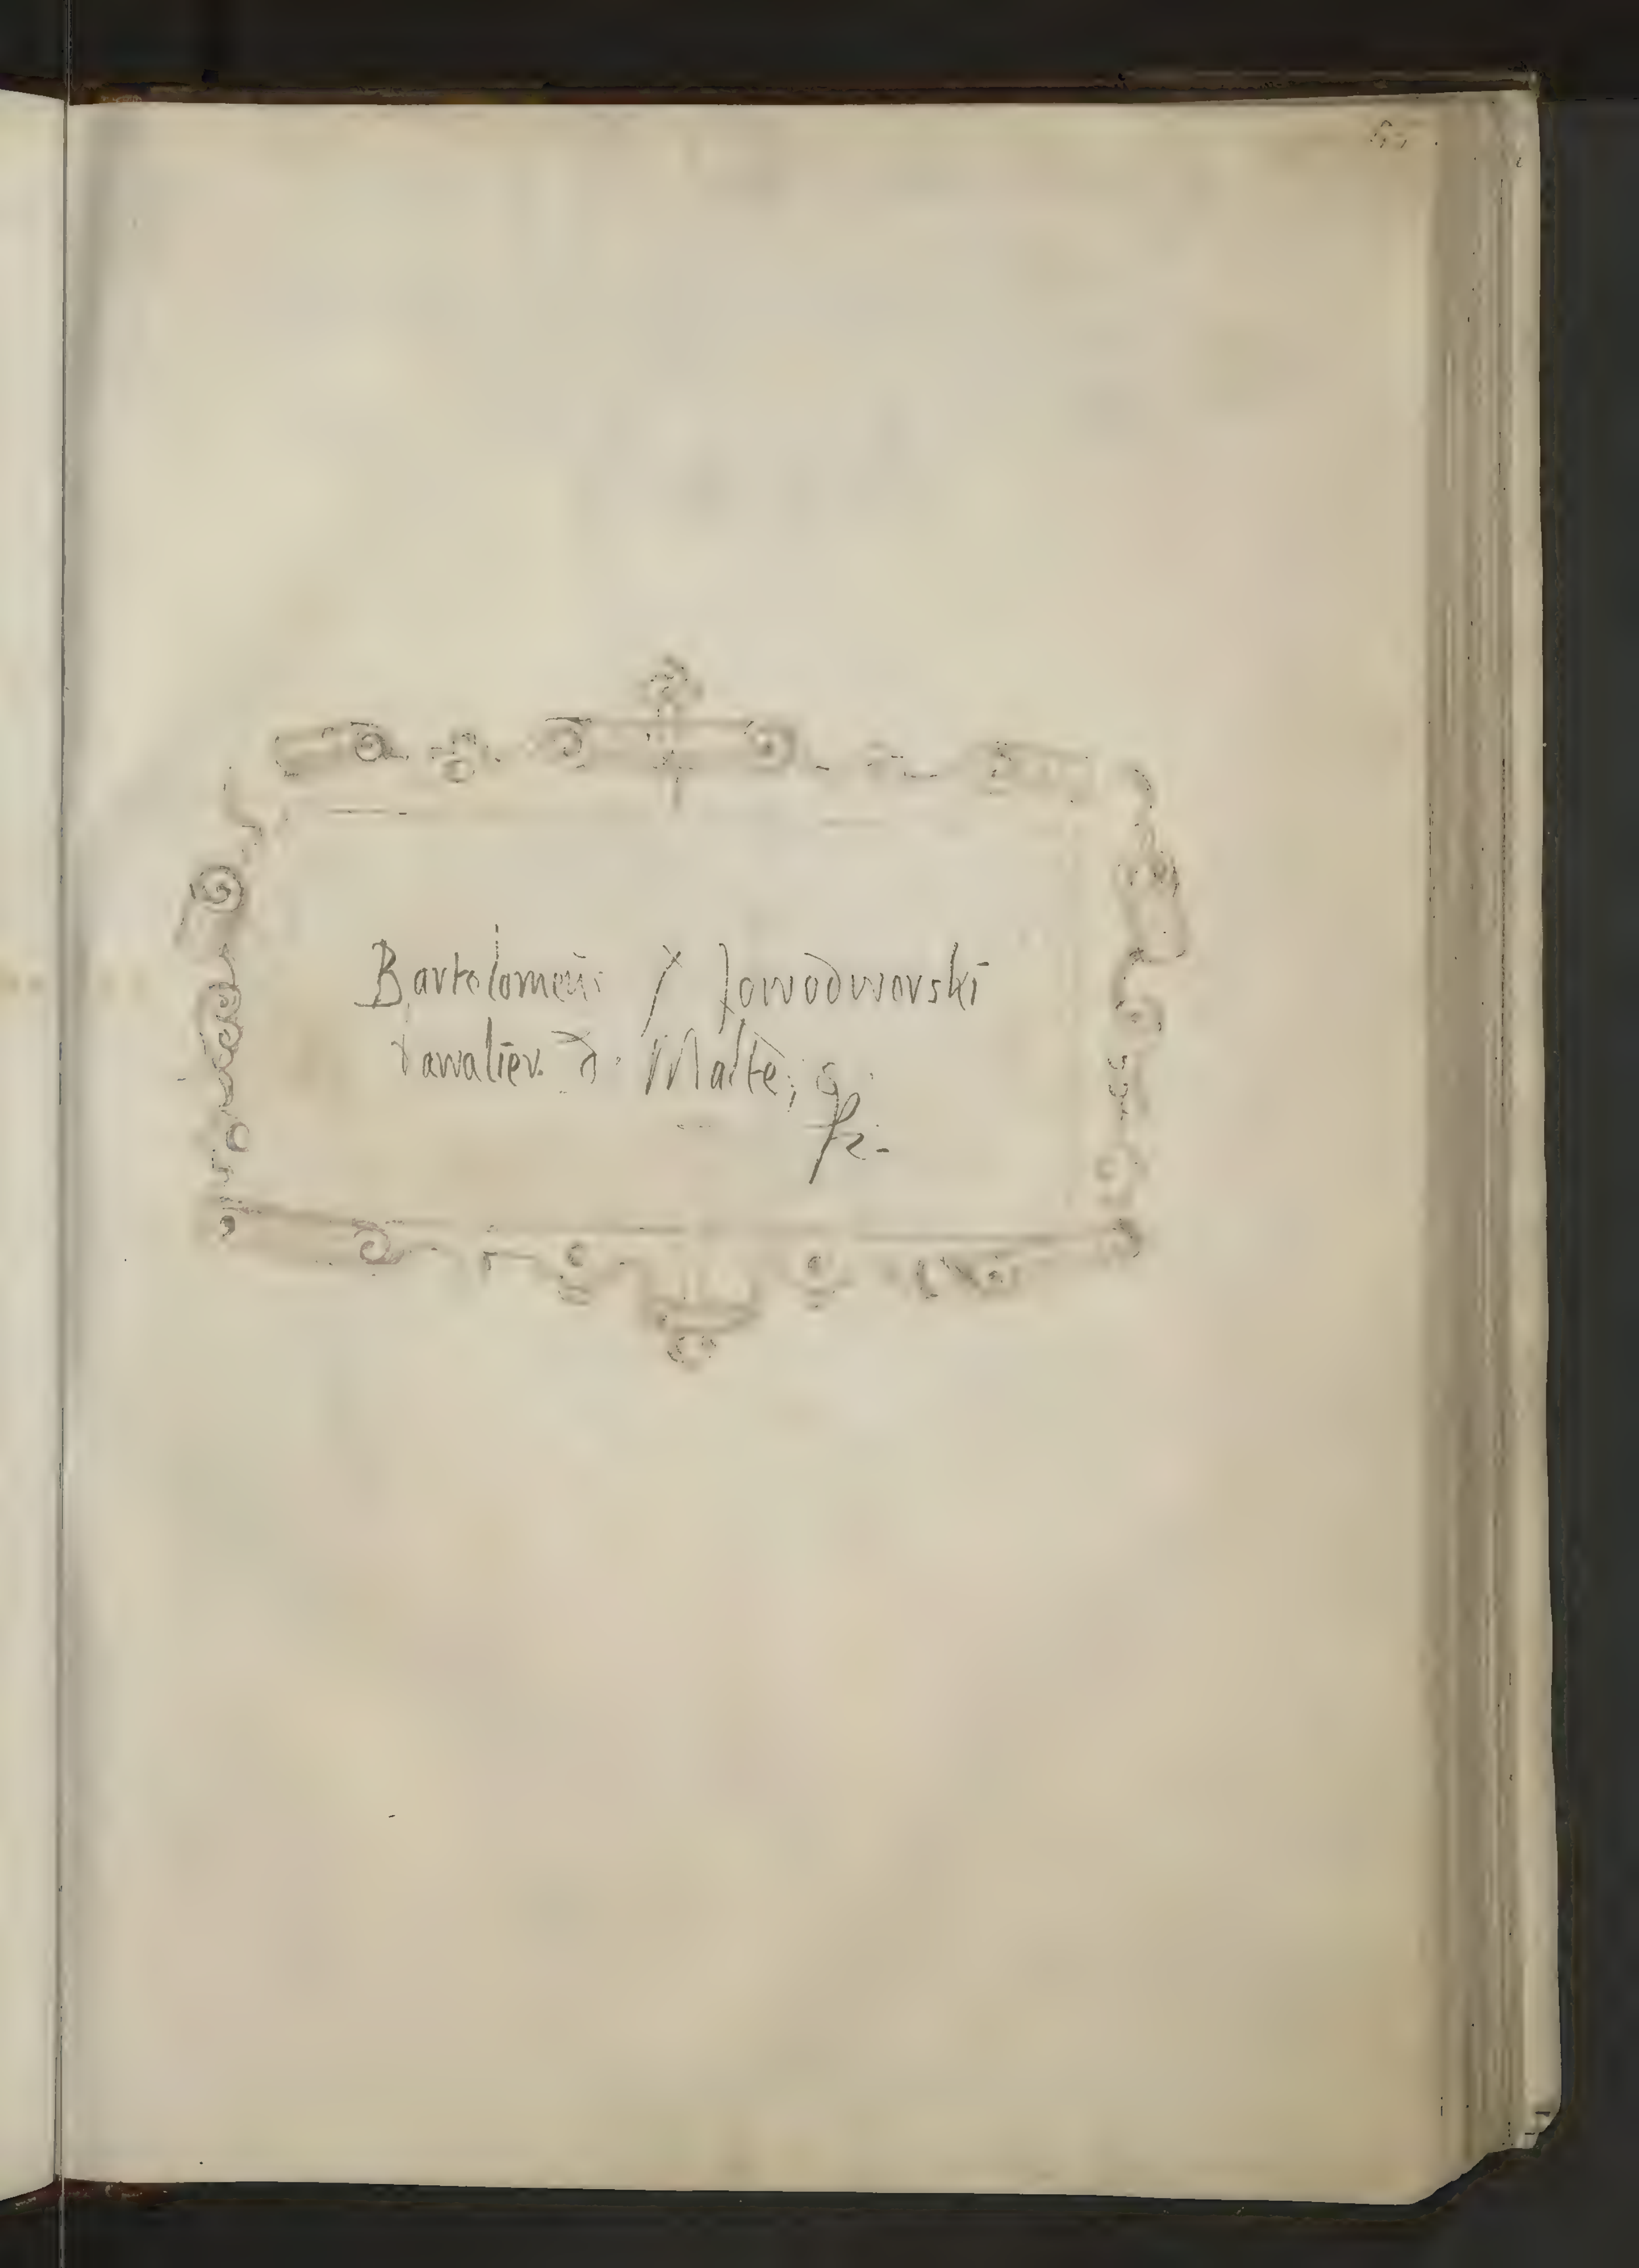 Bartolomeüs Nowodworski
Cawalier d. Malte,